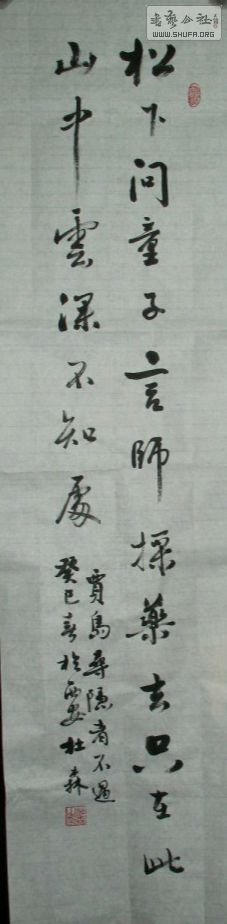 松下问童子言師採藥去只在此
山中雲深不知處
賈島尋隐者不遇
癸巳春於西安杜森
書藝公社
WWW.SHUFA.ORG